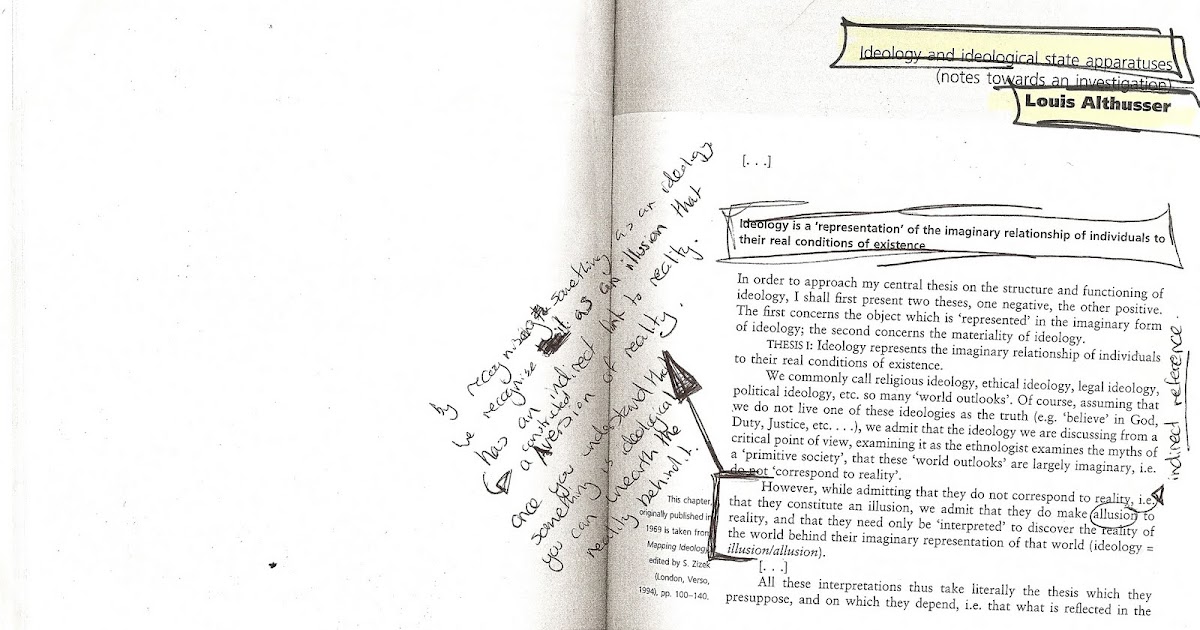 Ideology and ideological state apparatuses
(notes towards an investigation)
Louis Althusser
[. . .]
Ideology is a 'representation' of the imaginary relationship of individuals to
their real conditions of existence
In order to approach my central thesis on the structure and functioning of
ideology, I shall first present two theses, one negative, the other positive.
The first concerns the object which is 'represented' in the imaginary form
of ideology; the second concerns the materiality of ideology.
THESIS I: Ideology represents the imaginary relationship of individuals
to their real conditions of existence.
We commonly call religious ideology, ethical ideology, legal ideology,
political ideology, etc. so many 'world outlooks'. Of course, assuming that
we do not live one of these ideologies as the truth (e.g. 'believe' in God,
Duty, Justice, etc. . . .), we admit that the ideology we are discussing from a
critical point of view, examining it as the ethnologist examines the myths of
a 'primitive society', that these 'world outlooks' are largely imaginary, i.e.
do not 'correspond to reality'.
However, while admitting that they do not correspond to reality, i.e.
that they constitute an illusion, we admit that they do make allusion to
reality, and that they need only be 'interpreted' to discover the reality of
the world behind their imaginary representation of that world (ideology =
illusion/allusion).
[. . .]
All these interpretations thus take literally the thesis which they
presuppose, and on which they depend, i.e. that what is reflected in the
This chapter,
originally published in
1969 is taken from
Mapping Ideology,
edited by S. Zizek
(London, Verso,
1994), pp. 100–140.
By recognising something as an ideology
we recognise as an illusion that
has an indirect link to reality.
a constructed version of reality.
once you understand that
something is ideological
you can unearth the
reality behind it.
indirect reference